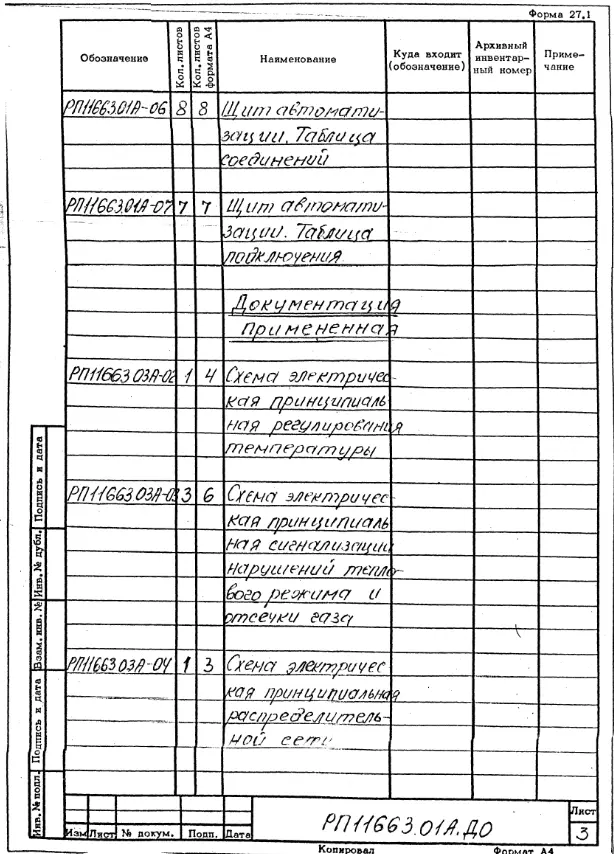 Форма 27.1
Обозначение Кол. листов Кол. листов формата А4 Наименование Куда входит (обозначение) Архивный инвентарный номер Примечание
РП11663.01А-06 8 8 Щит автомати-
зации. Таблица
соединений
РП11663.01А-07 7 7 Щит автомати-
зации. Таблица
подключения
Документация
примененная
РП11663.03А-02 1 4 Схема электричес-
кая принципиаль
ная регулирования
температуры
РП11663.03А-03 3 6 Схема электричес-
кая принципиаль
ная сигнализации
нарушений тепло-
вого режима и
отсечки газа
РП11663.03А-04 1 3 Схема электричес
кая принципиальная
распределитель-
ной сети
Инв. № подл. Подпись и дата Взам. инв. № Инв. № дубл. Подпись и дата
РП11663.01А.ДО
Лист
3
Изм Лист № докум. Подп. Дата
Копировал Формат А4